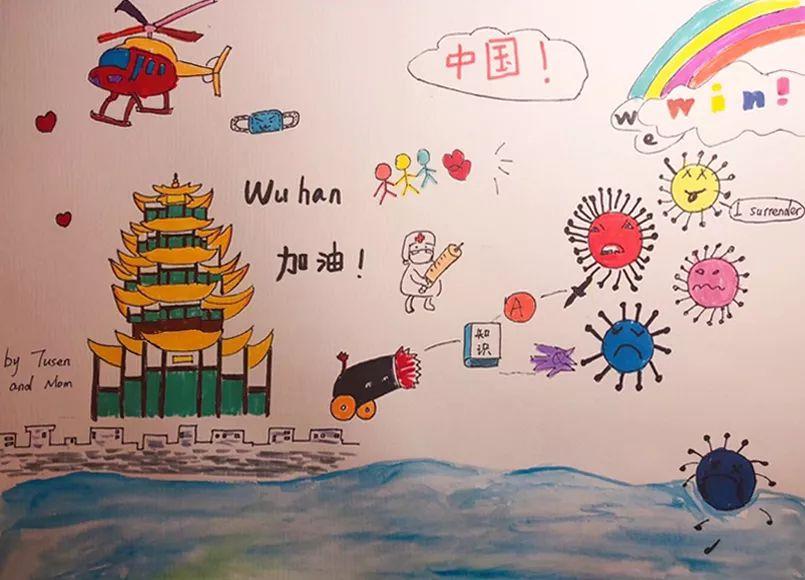 中国！
we win!
Wuhan
加油！
I surrender
A
知识
by Tusen
and Mom